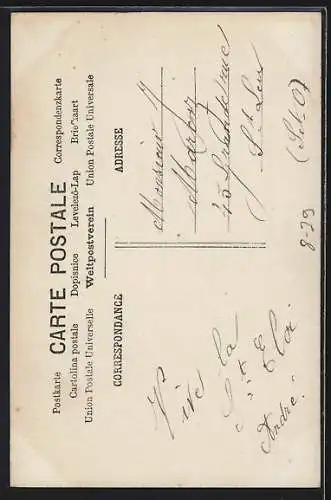 CARTE POSTALE
Postkarte Correspondenzkarte
Cartolina postale Dopisnice Levelező-Lap Briefkaart
Union Postale Universelle Weltpostverein Union Postale Universale
CORRESPONDANCE ADRESSE
Vive la
St Eloi
André.
Monsieur
45 Grande rue
St Leu
(S et O)
8-29